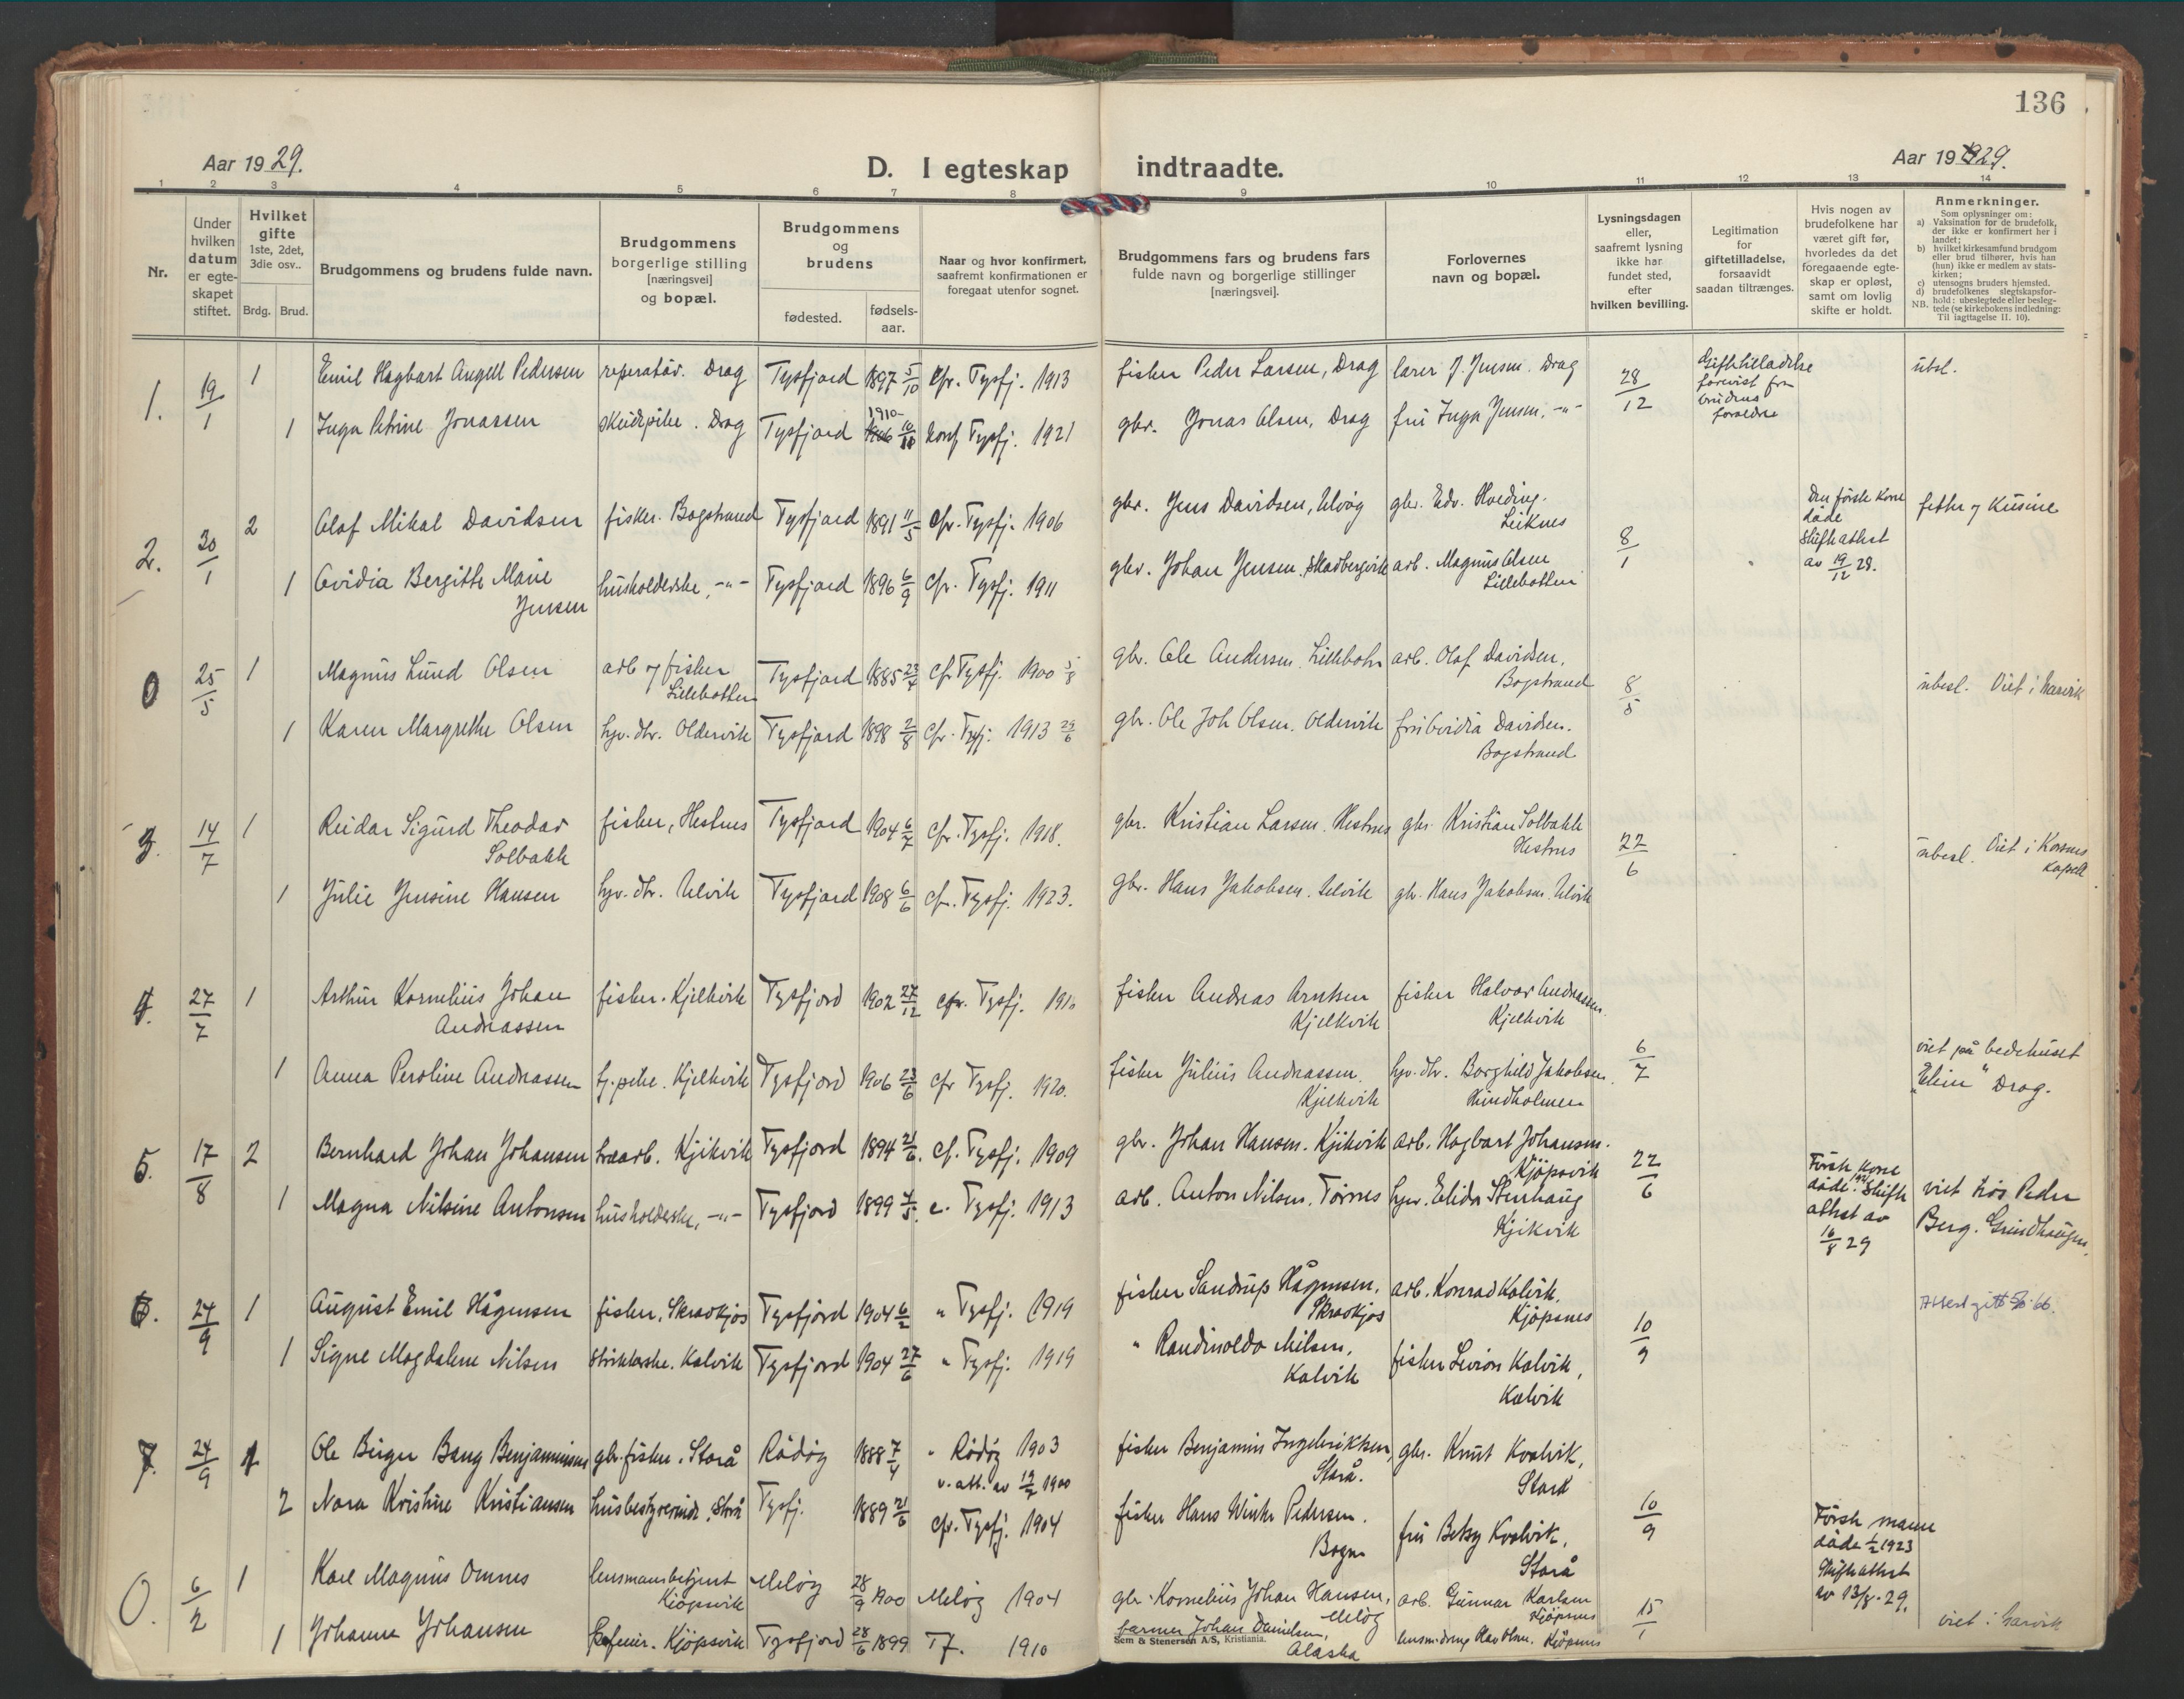 136
Aar 1929.
D. I egteskap indtraadte.
Aar 1929.
1 2 3 4 5 6 7 8 9 10 11 12 13 14
Nr.
Under hvilken datum er egteskapet stiftet.
Hvilket gifte 1ste, 2det, 3die osv..
Brdg. Brud.
Brudgommens og brudens fulde navn.
Brudgommens borgerlige stilling [næringsvei] og bopæl.
Brudgommens og brudens
fødested.
fødsels-aar.
Naar og hvor konfirmert, saafremt konfirmationen er foregaat utenfor sognet.
Brudgommens fars og brudens fars fulde navn og borgerlige stillinger [næringsvei].
Forlovernes navn og bopæl.
Lysningsdagen eller, saafremt lysning ikke har fundet sted, efter hvilken bevilling.
Legitimation for giftetilladelse, forsaavidt saadan tiltrænges.
Hvis nogen av brudefolkene har været gift før, hvorledes da det foregaaende egteskap er opløst, samt om lovlig skifte er holdt.
Anmerkninger.
Som oplysninger om:
a) Vaksination for de brudefolk, der ikke er konfirmert her i landet;
b) hvilket kirkesamfund brudgom eller brud tilhører, hvis han (hun) ikke er medlem av statskirken;
c) utensogns bruders hjemsted.
d) brudefolkenes slegtskapsforhold: ubeslegtede eller beslegtede (se kirkebokens indledning: NB. Til iagttagelse II. 10).
1. 19/1 1 Emil Hagbart Angell Pedersen reparatør. Drag Tysfjord 1897 5/10 Cfr. Tysfj. 1913 fisker Peder Larsen, Drag lærer J. Jensen. Drag 28/12 Giftetilladelse forevist fra brudens foreldre ubsl.
1 Inga Petrine Jonassen Drag Tysfjord 1910 konf Tysfj. 1921 gbr. Jonas Olsen, Drag fru Inga Jensen. -"-
2. 30/1 2 Olaf Mikal Davidsen fisker. Bogstrand Tysfjord 1891 11/5 cfr. Tysfj. 1906 gbr. Jens Davidsen, Ulvøg gbr. Edv. Hveding. Leiknes 8/1 Den første kone døde skifteattest av 19/12 28. fetter og Kusine
1 Ovidia Bergitte Marie Jensen husholderske, -"- Tysfjord 1896 6/9 cfr. Tysfj. 1911 gbr. Johan Jensen. Skarbergvik arb. Magnus Olsen Lillebotten
0 25/5 1 Magnus Lund Olsen arb og fisker Lillebotten Tysfjord 1885 23/4 cfr Tysfj. 1900 5/8 gbr. Ole Andersen. Lillebotn arb. Olaf Davidsen. Bogstrand 8/5 ubesl. Viet i Narvik
1 Karen Margrethe Olsen hjv. dtr. Oldervik Tysfjord 1898 2/8 Cfr. Tysfj. 1913 29/6 gbr. Ole Joh Olsen. Oldervik fru Ovidia Davidsen. Bogstrand
3. 14/7 1 Reidar Sigurd Theodor Solbakk fisker, Hestnes Tysfjord 1904 6/7 cfr. Tysfj. 1918. gbr. Kristian Larsen. Hestnes gbr. Kristian Solbakk Hestnes 22/6 ubesl. Viet i Korsnes kapell
1 Julie Jensine Hansen hjv. dtr. Ulvik Tysfjord 1908 6/6 cfr. Tysfj. 1923. gbr. Hans Jakobsen. Ulvik gbr. Hans Jakobsen. Ulvik
4. 27/7 1 Arthur Kornelius Johan Andreassen fisker. Kjelkvik Tysfjord 1902 27/12 cfr. Tysfj. fisker Andreas Arntsen Kjelkvik fisker Halvar Andreassen. Kjelkvik 6/7 viet på bedehuset "Elim" Drag.
1 Anna Peroline Andreassen tj.pike. Kjelkvik Tysfjord 1906 23/6 cfr Tysfj. 1920. fisker Julius Andreassen. Kjelkvik hjv. dtr. Borghild Jakobsen.
5. 17/8 2 Bernhard Johan Johansen Kjikvik Tysfjord 1894 21/6. cf. Tysfj. 1909 gbr. Johan Hansen. Kjikvik arb. Hagbart Johansen. Kjöpsvik 22/6 Første kone døde. Skifte attest av 16/8 29 viet hos Peder Berg. Grindhaugen.
1 Magna Nilsine Antonsen husholderske, -"- Tysfjord 1899 4/5. c. Tysfj. 1913 arb. Anton Nilsen. Tömnes Elida Stenhaug Kjikvik
6. 24/9 1 August Emil Hågensen fisker, Skrovkjos Tysfjord 1904 6/2 " Tysfj. 1919 fisker Sandrup Hågensen. Skrovkjos arb. Konrad Kalvik. Kjöpsnes 10/9
1 Signe Magdalene Nilsen strikkerske. Kalvik Tysfjord 1904 27/6 " Tysfj. 1919 " Nilsen, Kalvik fisker Kalvik, Kalvik
7. 24/9 1 Ole Birger Bang Benjaminsen gbr. fisker. Storå Rödöy 1888 7/4 " Rödöy 1903 v. att. av 19/2 1900 fisker Benjamin Ingebriktsen, Storå. gbr. Knut Kvalvik, Storå 10/9
2 Nora Kristine Kristiansen husbestyrerinde. Storå Tysfj. 1889 21/6 cfr. Tysfj. 1904 fisker Hans Winter Pedersen. Bogen fru Betsy Kvalvik, Storå Første mann døde 1/2 1923 Skifteattest av 13/8-29.
0. 6/2 1 Karl Magnus Omnes lensmansbetjent Kjöpsvik Meløy 28/9 1900 Meløy 1904 gbr. Kornelius Johan Hansen, Meløy arb. Gunnar Karlsen Kjöpsnes 15/1 viet i Narvik
1 Johanna Johansen Kjöpsvik Tysfjord 28/6 1899 Tf. 1910 farmer Johan Danielsen, Alaska Olav Olsen. Kjöpsnes
Sem & Stenersen A/S, Kristiania.